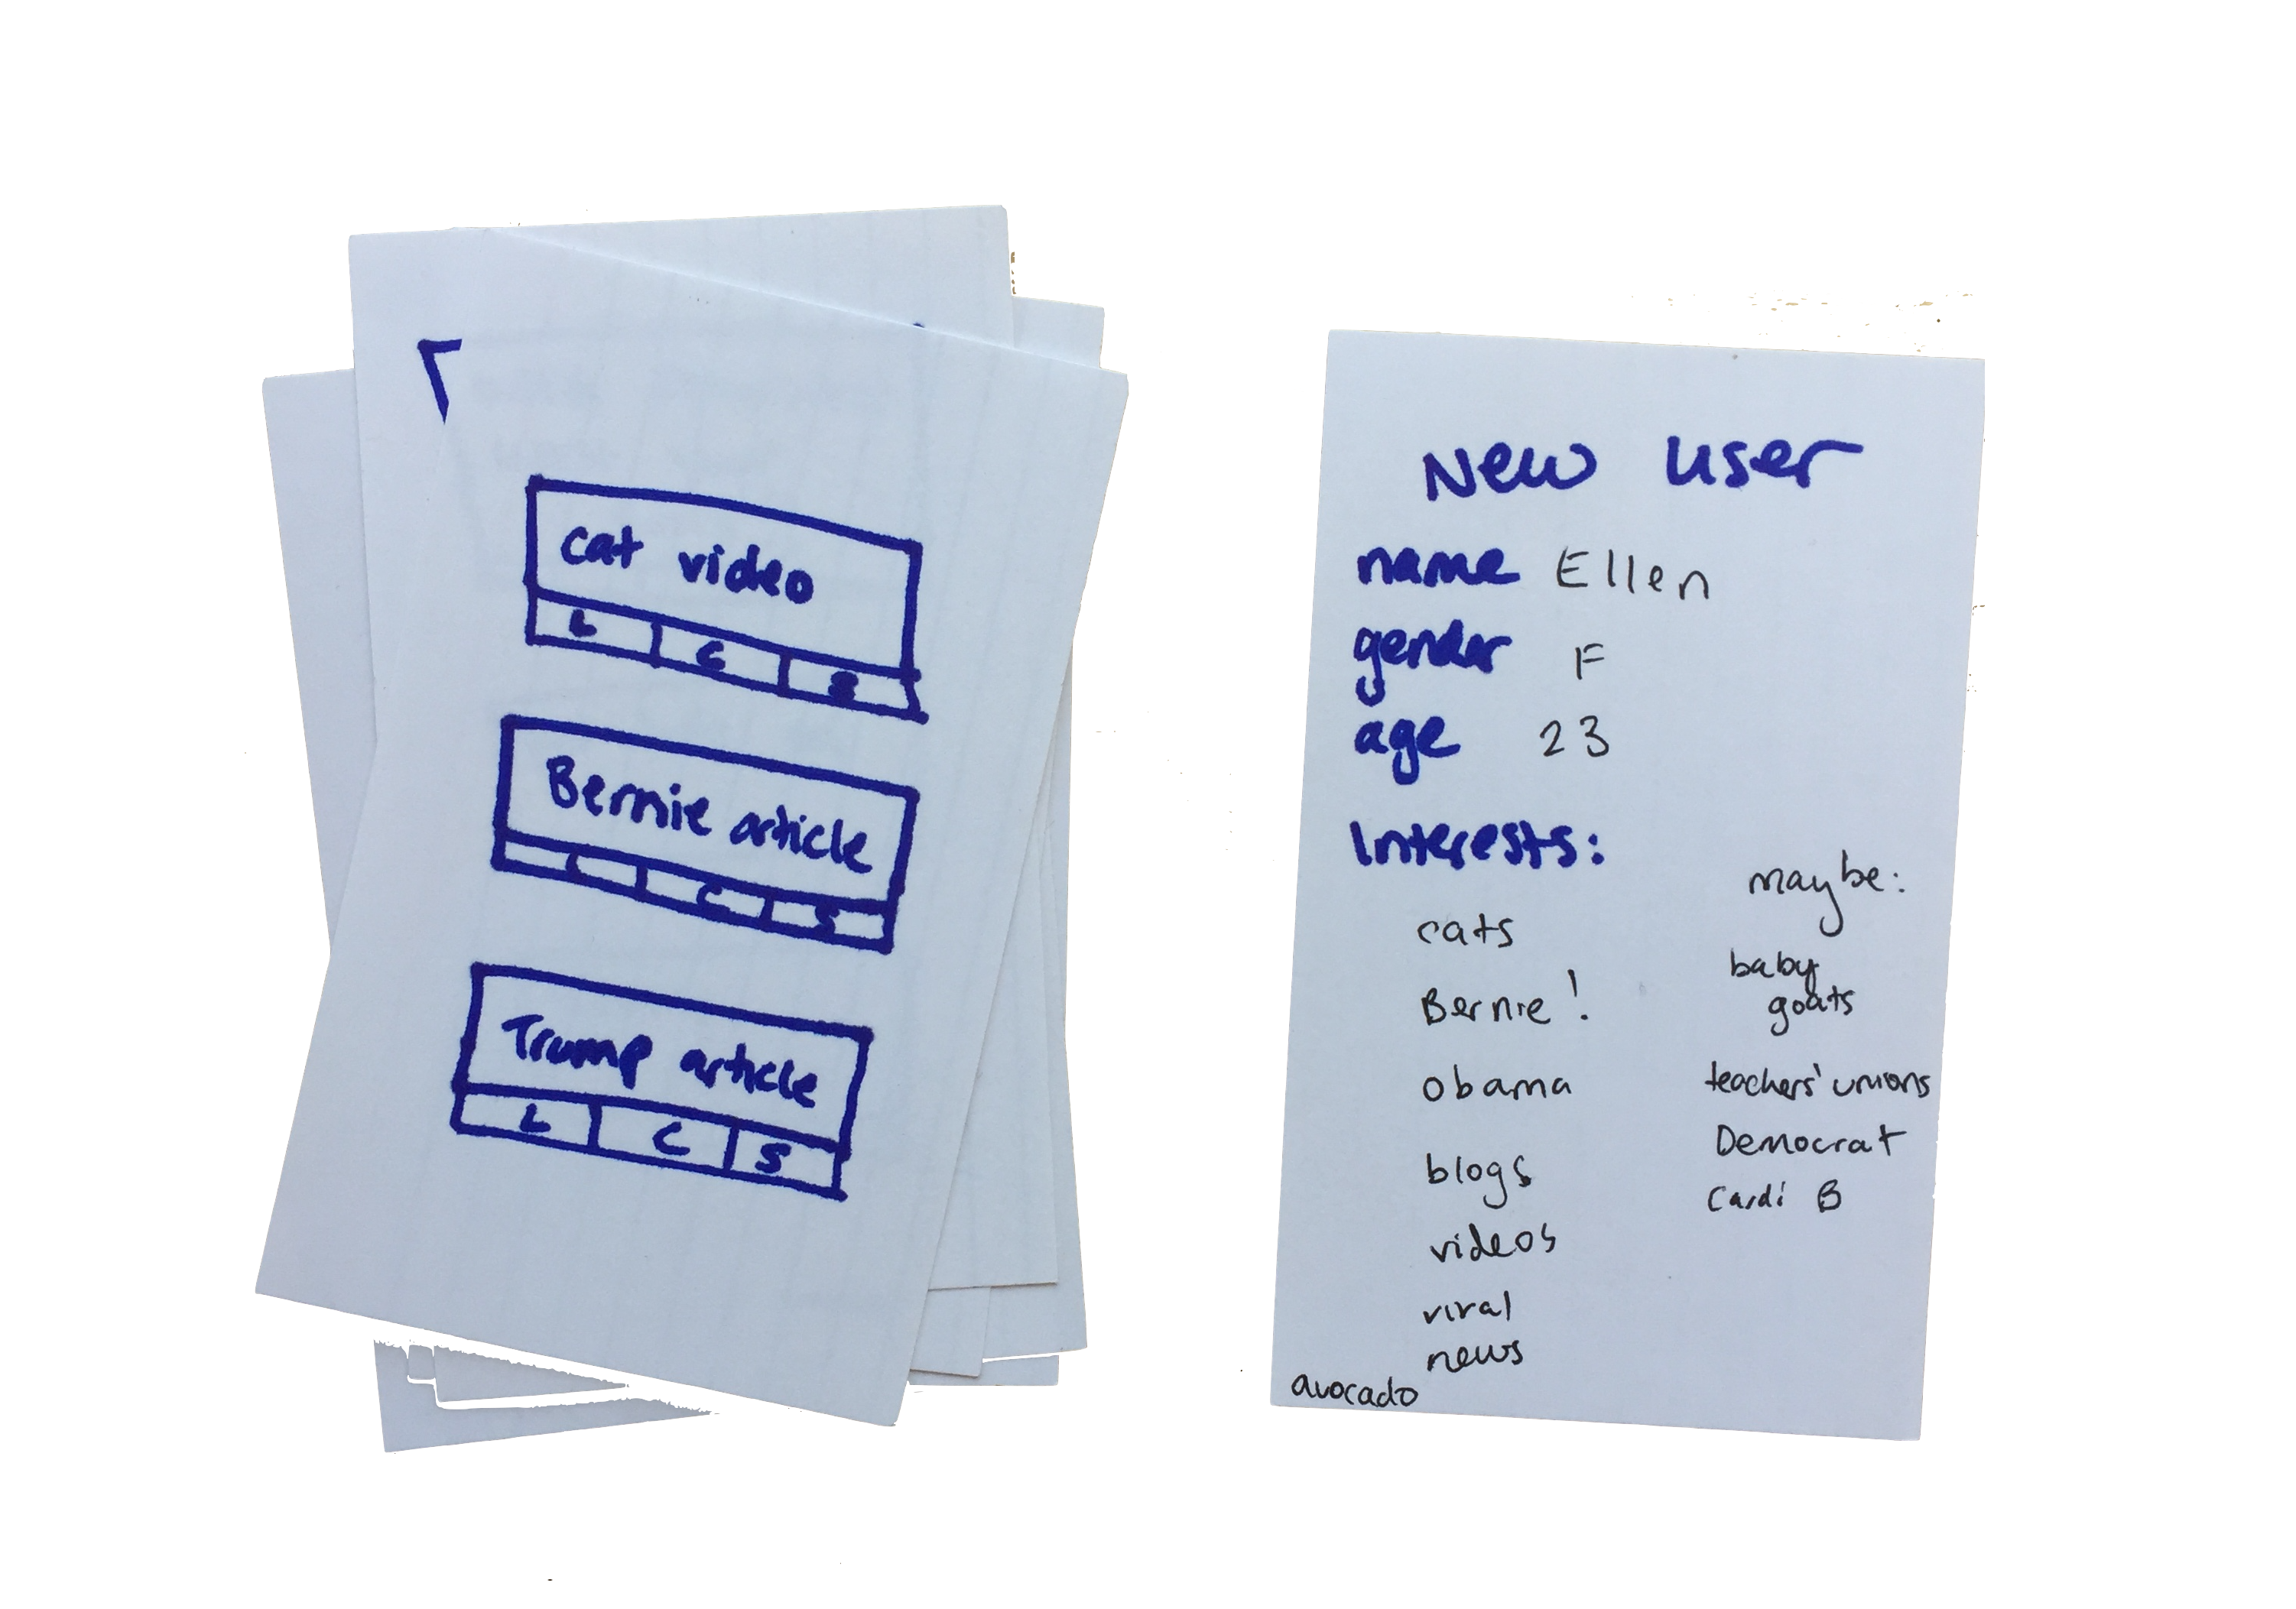 cat video
L C S
Bernie article
L C S
Trump article
L C S
New user
name Ellen
gender F
age 23
Interests:
cats
Bernie!
obama
blogs
videos
viral
news
avocado
maybe:
baby
goats
teachers' unions
Democrat
Cardi B